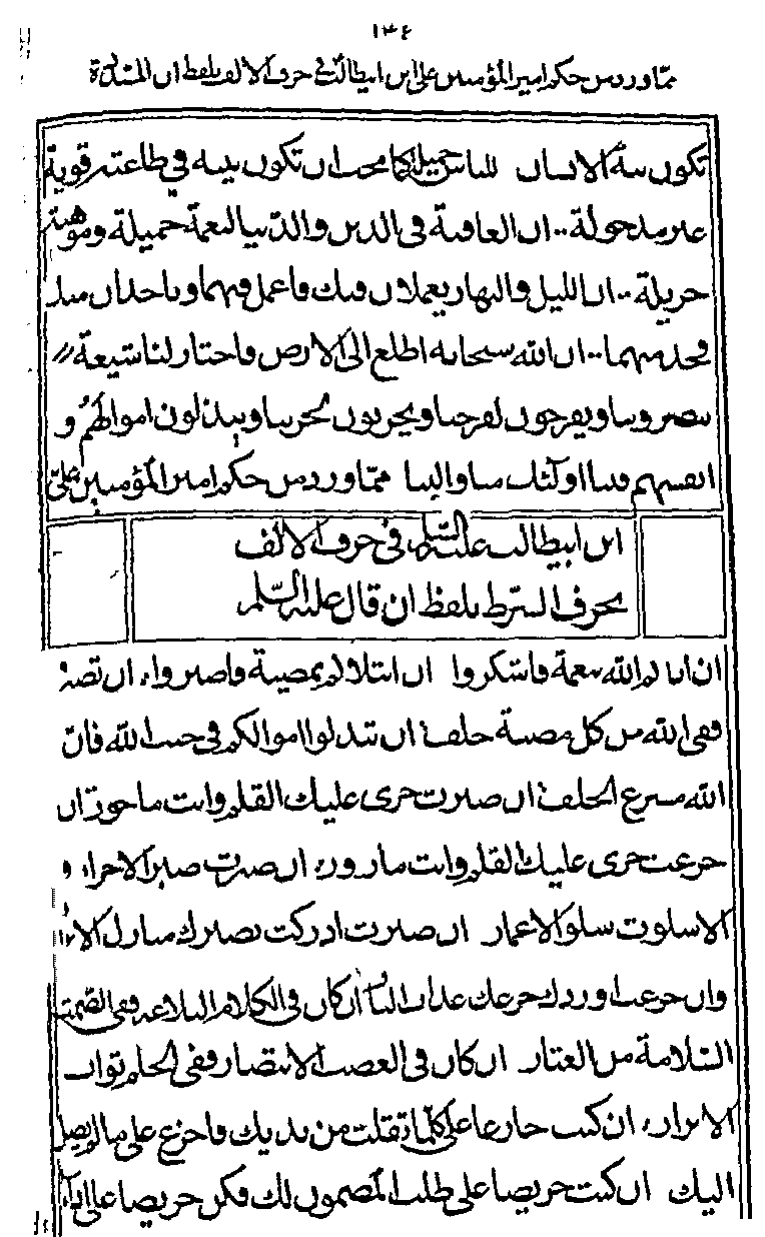 ١٣٤
مما ورد من حكم امير المؤمنين علي ابن ابيطالب في حرف الالف بلفظ ان المشددة
تكون نية الانسان للناس جميلة كما يحب ان تكون نيته في طاعته قوية
غير مدخولة ان العافية في الدين والدنيا لنعمة جميلة وموهبة
جزيلة ان الليل والنهار يعملان فيك فاعمل فيهما وياخذان منك
فخذ منهما ان الله سبحانه اطلع الى الارض فاختار لنا شيعة
ينصروننا ويفرحون لفرحنا ويحزنون لحزننا ويبذلون اموالهم و
انفسهم فينا اولئك منا والينا مما ورد من حكم امير المؤمنين علي
ابن ابيطالب عليه السلام في حرف الالف
بحرف الشرط بلفظ ان قال عليه السلام
ان اتاكم الله بنعمة فاشكروا ان ابتلاكم بمصيبة فاصبروا ان تصبر
ففي الله من كل مصيبة خلف ان تبذلوا اموالكم في جنب الله فان
الله مسرع الخلف ان صبرت جرى عليك القلم وانت ماجور ان
جزعت جرى عليك القلم وانت مازور ان صبرت صبر الاحرار و
الا سلوت سلو الاغمار ان صبرت ادركت بصبرك منازل الابرار
وان جزعت اوردك جزعك عذاب النار ان كان في الكلام البلاغة ففي الصمت
السلامة من العثار ان كان في الغضب الانتصار ففي الحلم ثواب
الابرار ان كنت جازعا على كلما تفلت من يديك فاجزع على ما لم يصل
اليك ان كنت حريصا على طلب المضمون لك فكن حريصا على اداء